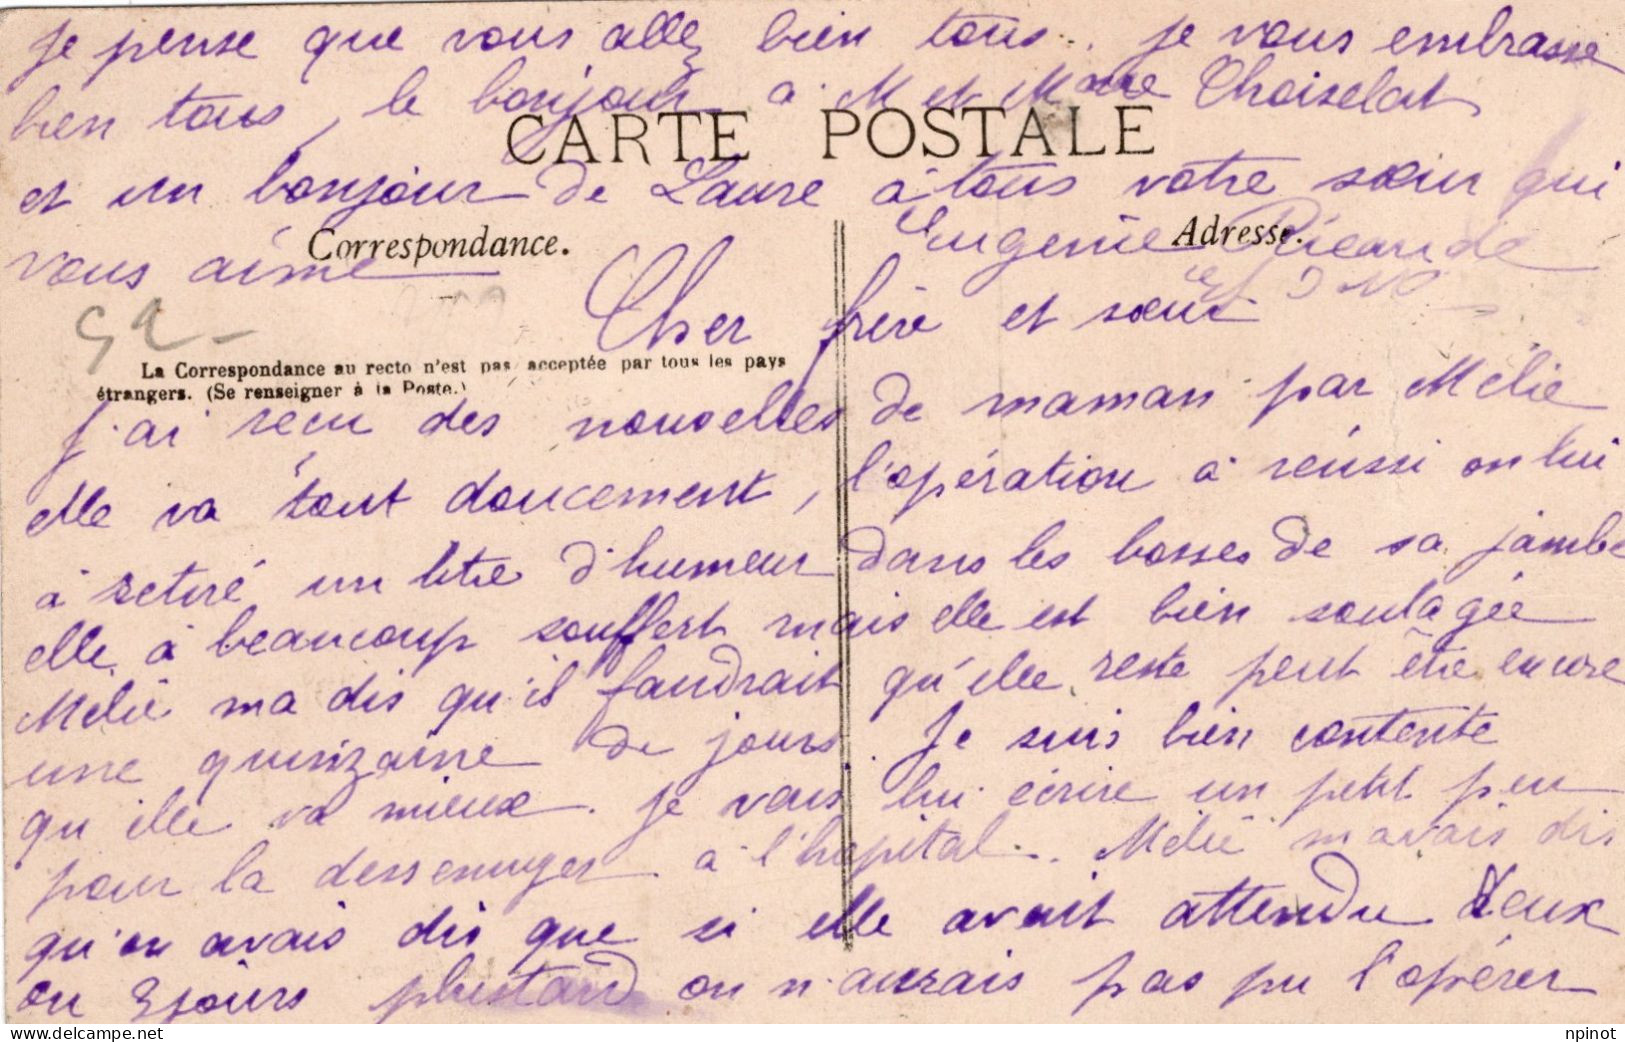 je pense que vous allez bien tous. je vous embrasse
bien tous, le bonjour à M et Mme Choiselat
CARTE POSTALE
et un bonjour de Laure à tous votre sœur qui
vous aime
Correspondance.
Adresse.
Eugenie
Cher frère et sœur
La Correspondance au recto n'est pas acceptée par tous les pays
étrangers. (Se renseigner à la Poste.)
j'ai recu des nouvelles de maman par Mélie
elle va tout doucement, l'opération à réussi on lui
à retiré un litre d'humeur dans les bosses de sa jambe
elle à beaucoup souffert mais elle est bien soulagée
Mélie ma dis qu'il faudrait qu'elle reste peut être encore
une quinzaine de jours. Je suis bien contente
qu'elle va mieux. je vais lui écrire un petit peu
pour la dessennuyer à l'hopital. Mélie m'avais dis
qu'on avais dis que si elle avait attendu deux
ou 3 jours plustard on n'aurais pas pu l'opérer
npinot